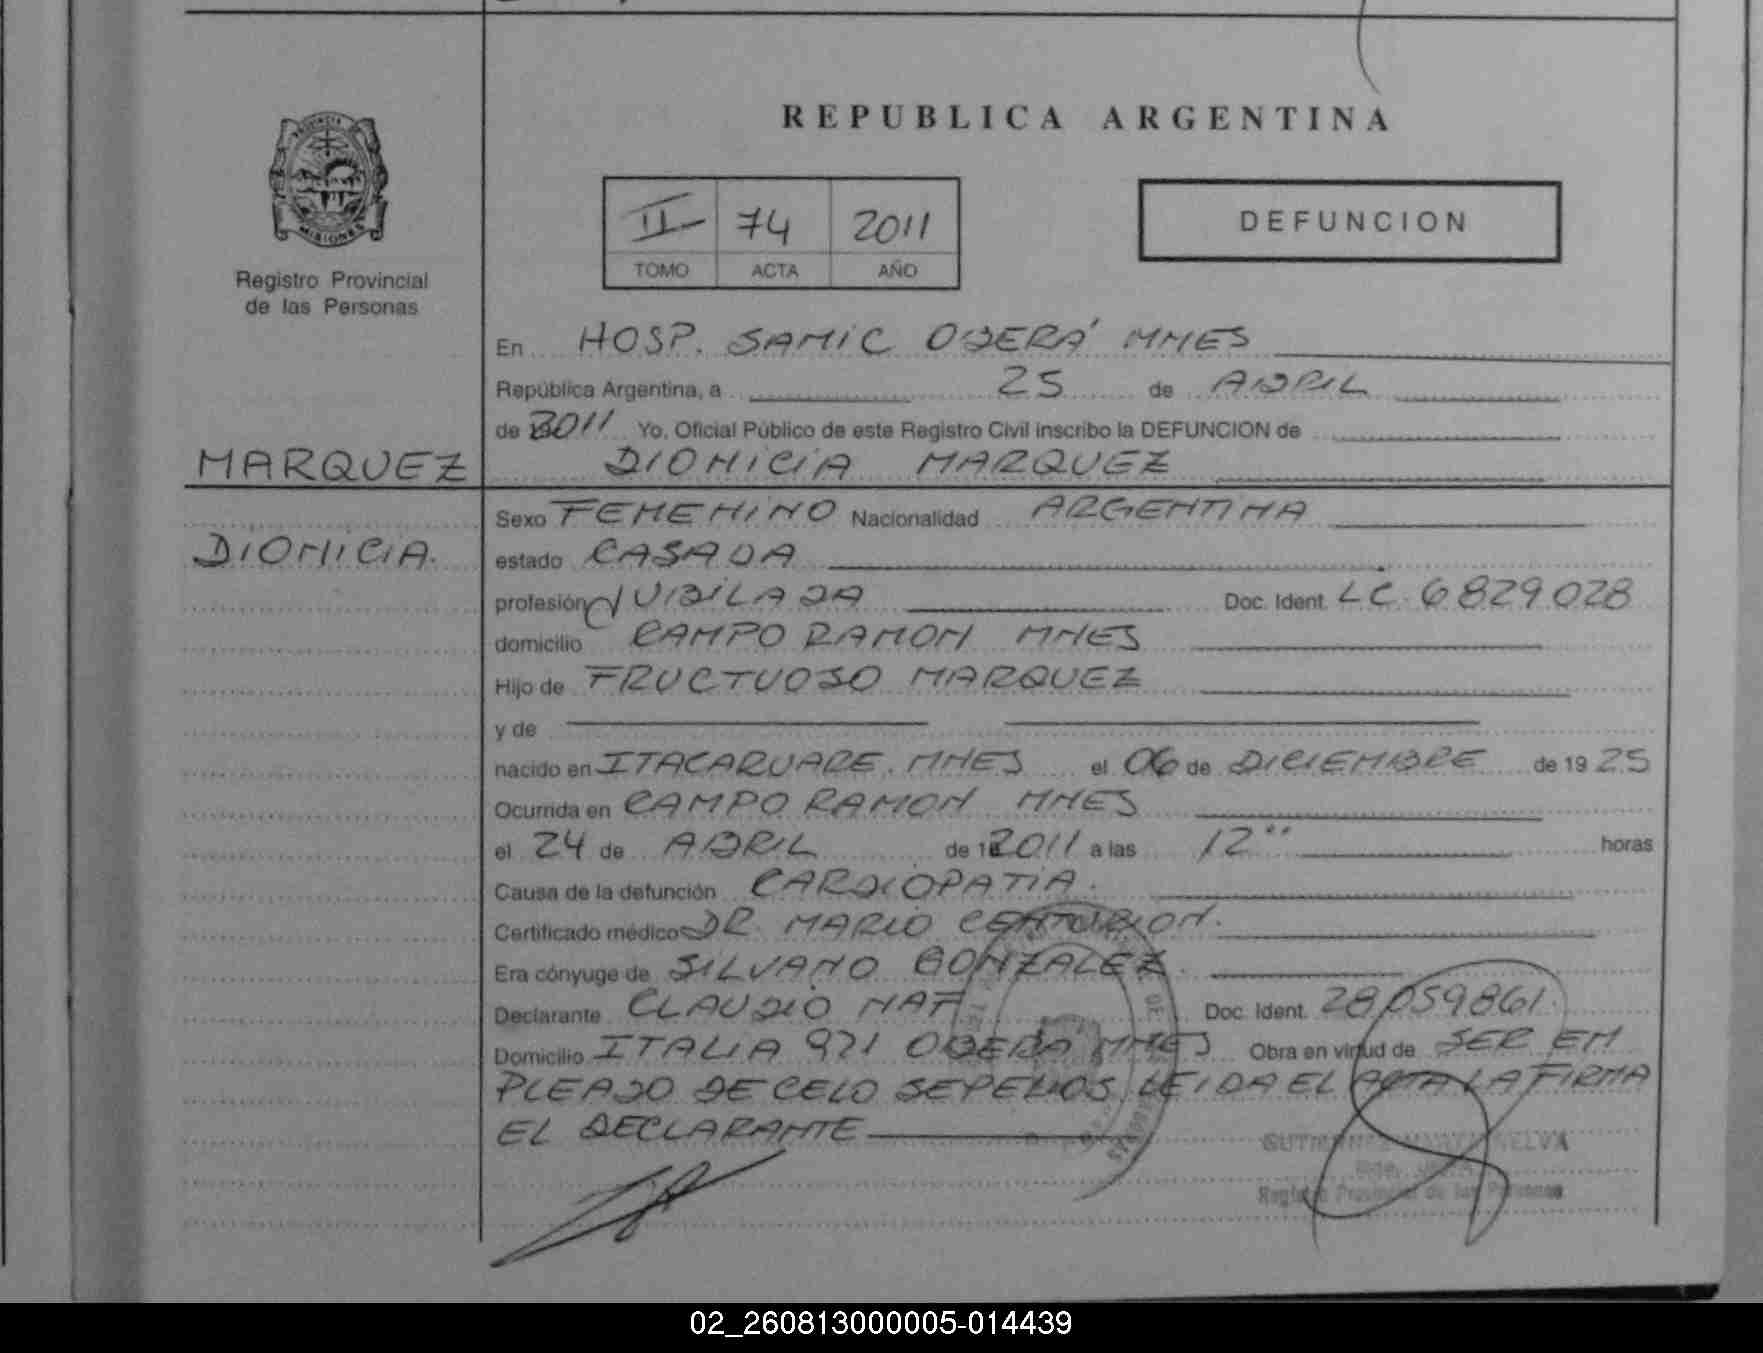 REPUBLICA ARGENTINA
PROVINCIA
MISIONES
Registro Provincial
de las Personas
II 74 2011
TOMO ACTA AÑO
DEFUNCION
En HOSP. SAMIC OBERÁ MNES
República Argentina, a 25 de ABRIL
de 2011 Yo, Oficial Público de este Registro Civil inscribo la DEFUNCION de
MARQUEZ
DIONICIA MARQUEZ
DIONICIA.
Sexo FEMENINO Nacionalidad ARGENTINA
estado CASADA
profesión JUBILADA Doc. Ident. LC 6829028
domicilio CAMPO RAMON MNES
Hijo de FRUCTUOSO MARQUEZ
y de
nacido en ITACARUARE. MNES el 06 de DICIEMBRE de 19 25
Ocurrida en CAMPO RAMON MNES
el 24 de ABRIL de 2011 a las 12 horas
Causa de la defunción CARDIOPATIA.
Certificado médico DR. MARIO CENTURION.
Era cónyuge de SILVANO GONZALEZ.
Declarante CLAUDIO Doc. Ident. 28059861.
Domicilio ITALIA 971 OBERA MNES Obra en virtud de SER EM
PLEADO DE CELO SEPELIOS, LEIDA EL ACTA LA FIRMA
EL DECLARANTE
Registro Provincial de las Personas
02_260813000005-014439